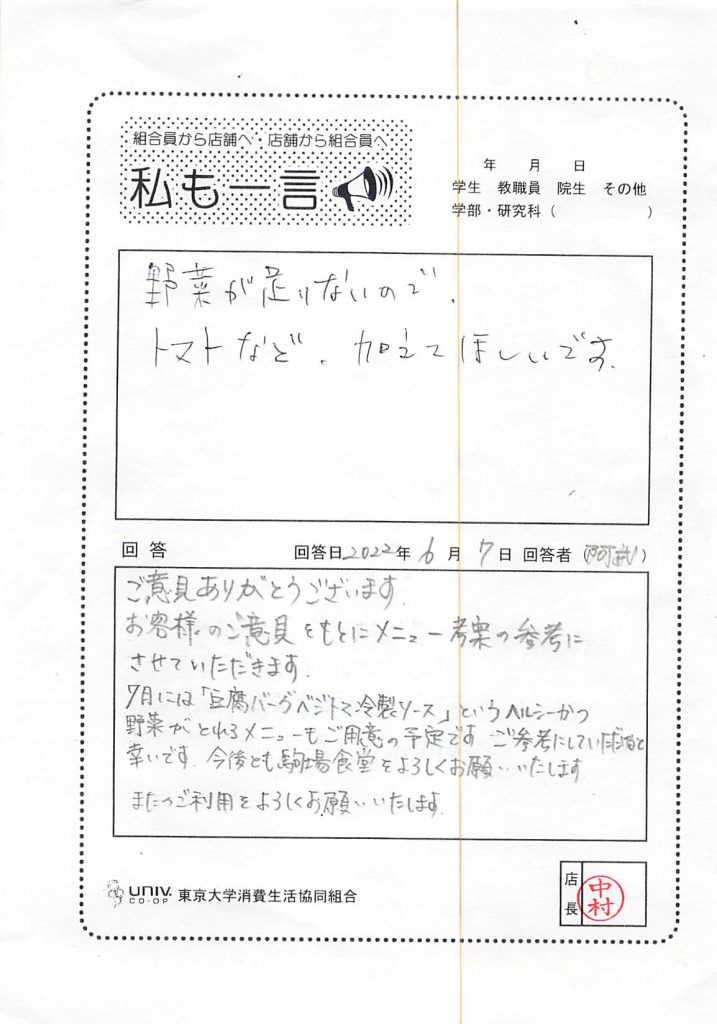 組合員から店舗へ・店舗から組合員へ
私も一言
年 月 日
学生 教職員 院生 その他
学部・研究科( )
野菜が足りないので、
トマトなど、加えてほしいです。
回答 回答日2022年6月7日 回答者(阿武)
ご意見ありがとうございます。
お客様のご意見をもとにメニュー考案の参考に
させていただきます。
7月には「豆腐バーグベジトマ冷製ソース」というヘルシーかつ
野菜がとれるメニューもご用意の予定です ご参考にしていただけると
幸いです。今後とも駒場食堂をよろしくお願いいたします
またのご利用をよろしくお願いいたします。
UNIV. CO-OP 東京大学消費生活協同組合
店長 中村